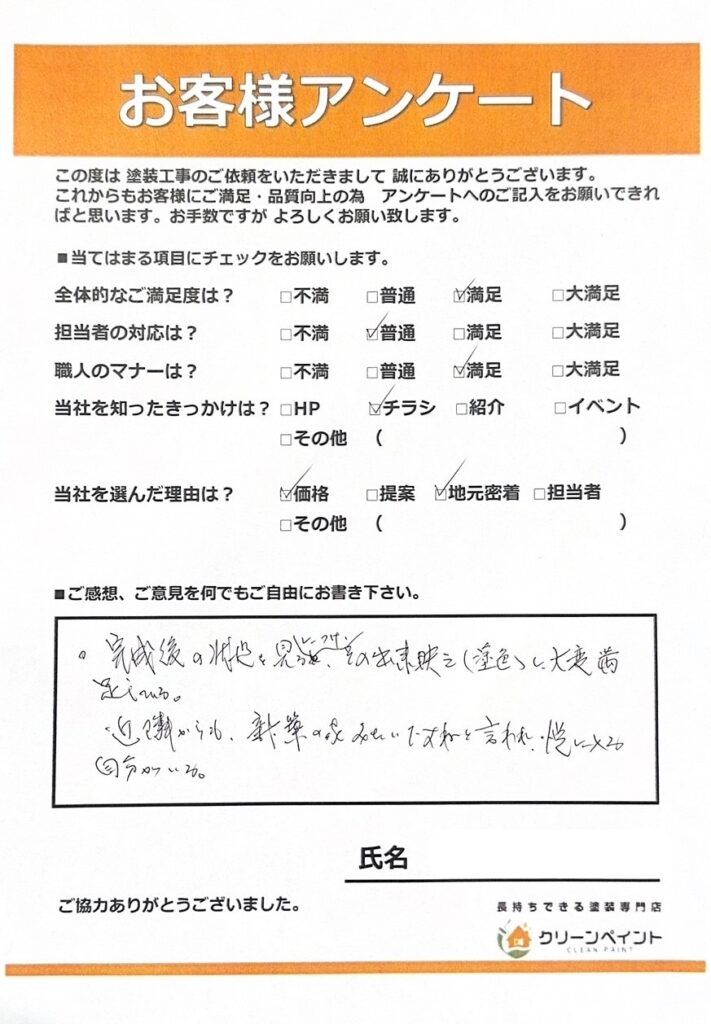 お客様アンケート
この度は 塗装工事のご依頼をいただきまして 誠にありがとうございます。
これからもお客様にご満足・品質向上の為　アンケートへのご記入をお願いできれ
ばと思います。お手数ですが よろしくお願い致します。
■当てはまる項目にチェックをお願いします。
全体的なご満足度は？ □不満 □普通 ☑満足 □大満足
担当者の対応は？ □不満 ☑普通 □満足 □大満足
職人のマナーは？ □不満 □普通 ☑満足 □大満足
当社を知ったきっかけは？ □HP ☑チラシ □紹介 □イベント
□その他 （ ）
当社を選んだ理由は？ ☑価格 □提案 ☑地元密着 □担当者
□その他 （ ）
■ご感想、ご意見を何でもご自由にお書き下さい。
。完成後の状況を見 その出来映え（塗色）に大変満
足している。
近隣からも、新築の家みたいですねと言われ、悦に入る
自分がいる。
氏名
ご協力ありがとうございました。
長持ちできる塗装専門店
クリーンペイント
CLEAN PAINT